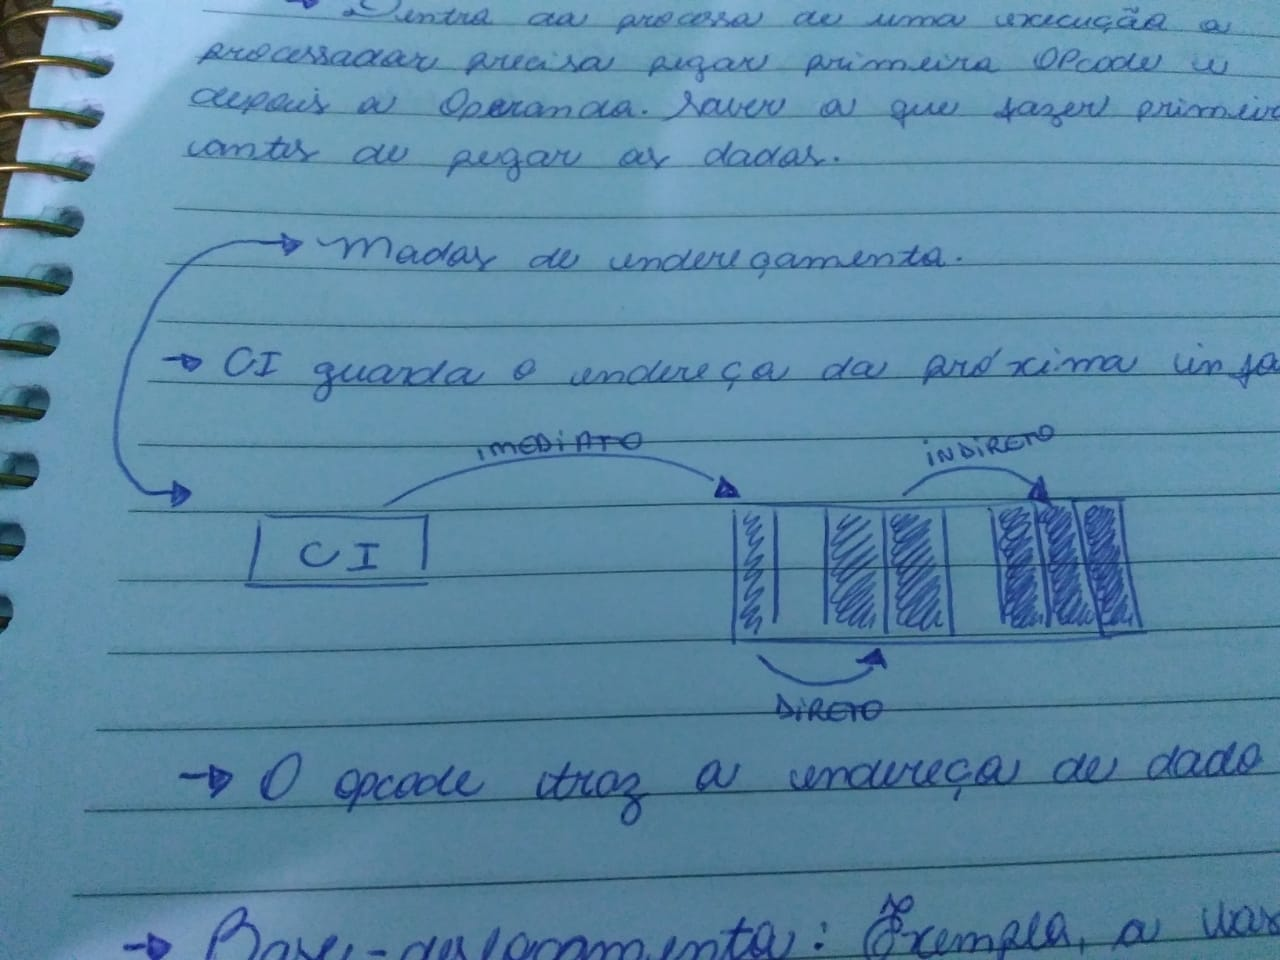 → Dentro do processo de uma execução o
processador precisa pegar primeiro OPcode e
depois o Operando. Saber o que fazer primeiro
antes de pegar os dados.
→ Modos de endereçamento.
→ CI guarda o endereço da próxima
IMEDIATO
INDIRETO
CI
DIRETO
→ O opcode traz o endereço de dado
→ Base-deslocamento: Exemplo, o